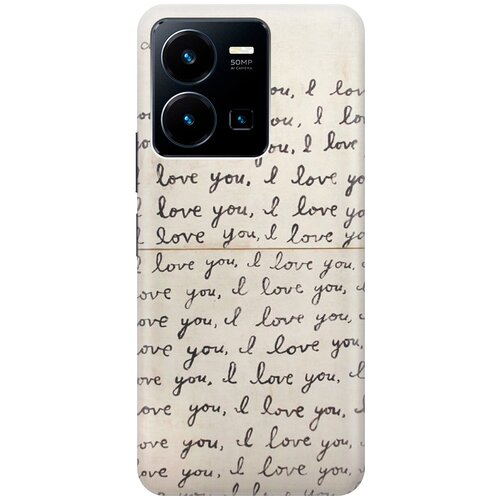 50MP
AI CAMERA
you, I lov
you, I love
you, I love
love you, I love yo
love you, I love yo
I love you, I love yo
I love you, I love you,
ove you, I love you,
ove you, I love you,
ove you, I love you,
ove you, I love you, I
ove you, I love you, I
ove you, I love you,
ove you, I love you,